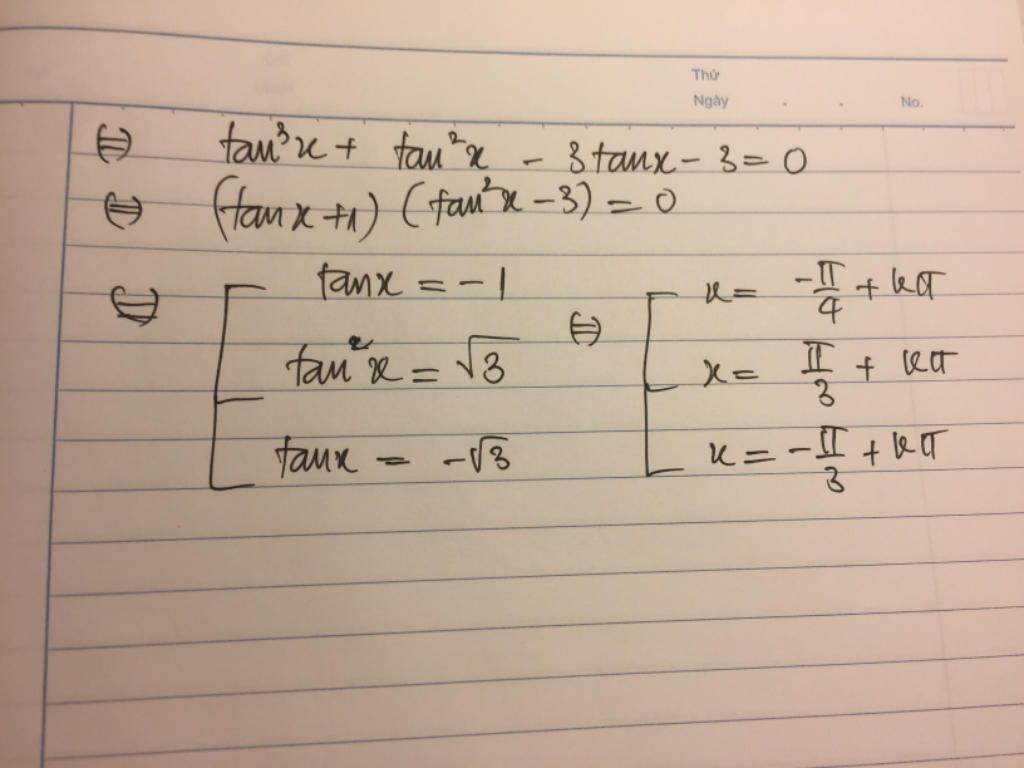 Thứ
Ngày . . No.
⇔ tan³x + tan²x - 3tanx - 3 = 0
⇔ (tanx +1) (tan²x - 3) = 0
⇔ [ tanx = -1 ⇔ [ x = -π/4 + kπ
tan²x = √3 x = π/3 + kπ
tanx = -√3 x = -π/3 + kπ